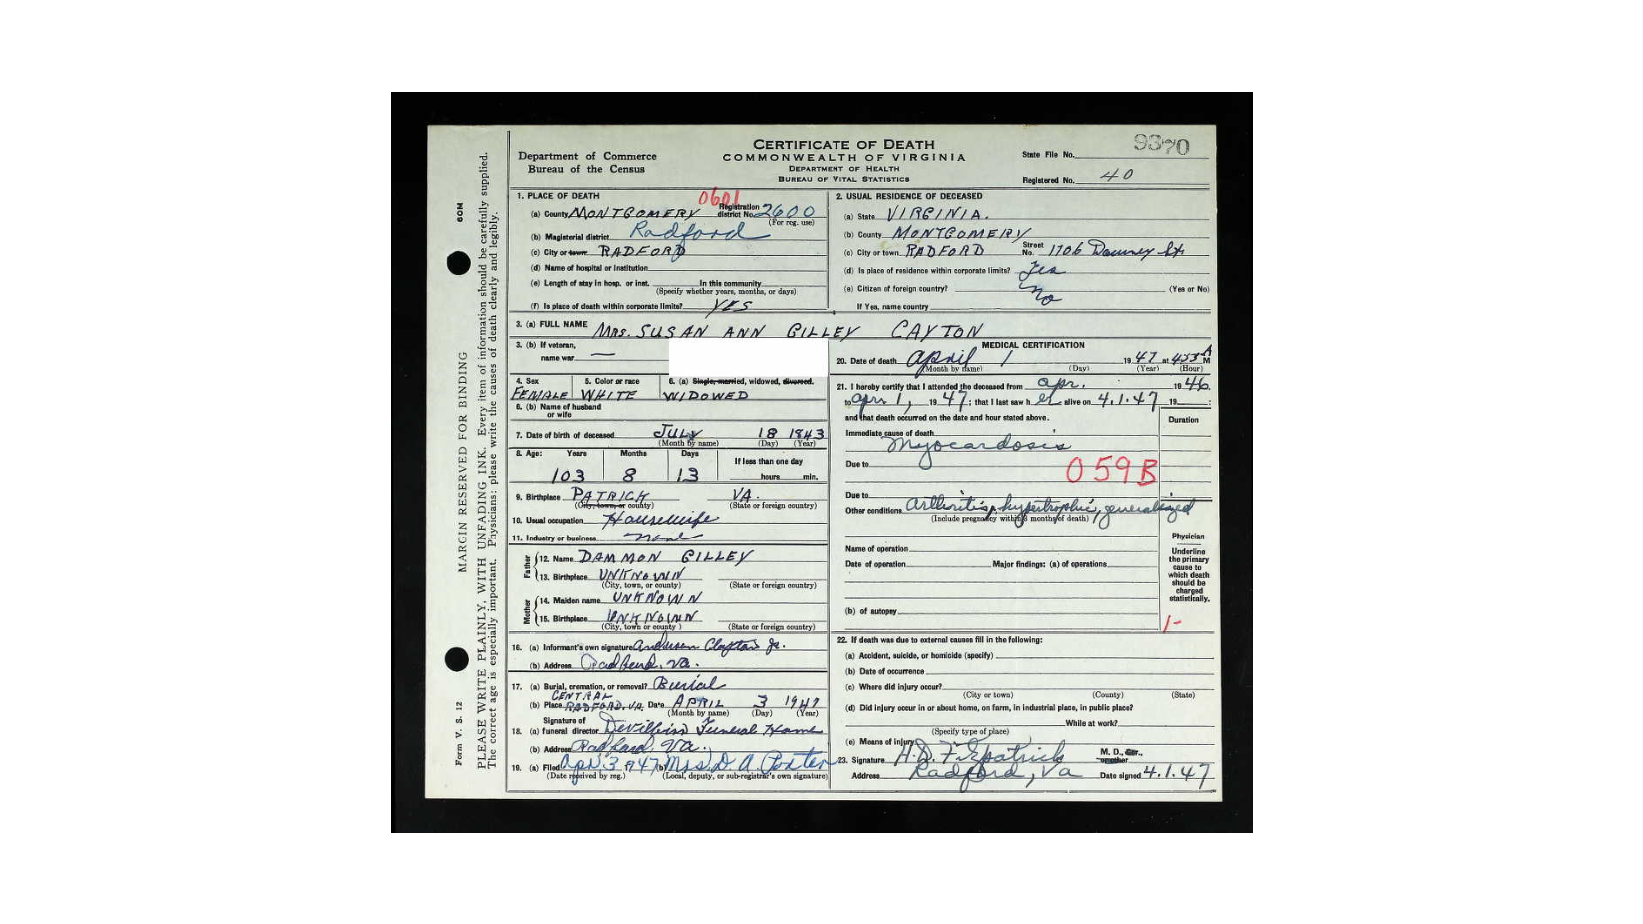 CERTIFICATE OF DEATH
COMMONWEALTH OF VIRGINIA
DEPARTMENT OF HEALTH
BUREAU OF VITAL STATISTICS
Department of Commerce
Bureau of the Census
State File No. 9370
Registered No. 40
MARGIN RESERVED FOR BINDING
60M
Form V. S. 12
PLEASE WRITE PLAINLY, WITH UNFADING INK. Every item of information should be carefully supplied.
The correct age is especially important. Physicians: please write the causes of death clearly and legibly.
1. PLACE OF DEATH
0601
(a) County MONTGOMERY Registration district No. 2600
(For reg. use)
(b) Magisterial district Radford
(c) City or town RADFORD
(d) Name of hospital or institution
(e) Length of stay in hosp. or inst. In this community
(Specify whether years, months, or days)
(f) Is place of death within corporate limits? YES
2. USUAL RESIDENCE OF DECEASED
(a) State VIRGINIA.
(b) County MONTGOMERY
(c) City or town RADFORD Street No. 1706 Downey St
(d) Is place of residence within corporate limits? Yes
(e) Citizen of foreign country? No (Yes or No)
If Yes, name country
3. (a) FULL NAME MRS. SUSAN ANN GILLEY CAYTON
3. (b) If veteran,
name war —
4. Sex FEMALE
5. Color or race WHITE
6. (a) Single, married, widowed, divorced. WIDOWED
6. (b) Name of husband
or wife
7. Date of birth of deceased JULY 18 1843
(Month by name) (Day) (Year)
8. Age: Years Months Days If less than one day
103 8 13 hours min.
9. Birthplace PATRICK VA.
(City, town, or county) (State or foreign country)
10. Usual occupation Housewife
11. Industry or business none
Father
12. Name DAMMON GILLEY
13. Birthplace UNKNOWN
(City, town, or county) (State or foreign country)
Mother
14. Maiden name UNKNOWN
15. Birthplace UNKNOWN
(City, town or county) (State or foreign country)
16. (a) Informant's own signature Anderson Clayton Jr.
(b) Address Radford, Va.
17. (a) Burial, cremation, or removal? Burial
(b) Place CENTRAL RADFORD. VA. Date APRIL 3 1947
(Month by name) (Day) (Year)
Signature of
18. (a) funeral director DeVilbiss Funeral Home
(b) Address Radford, Va.
19. (a) Filed Apr 3 1947 (b) Mrs. D. A. Porter
(Date received by reg.) (Local, deputy, or sub-registrar's own signature)
MEDICAL CERTIFICATION
20. Date of death April 1 1947 at 455 A M
(Month by name) (Day) (Year) (Hour)
21. I hereby certify that I attended the deceased from Apr. 1946
to Apr. 1, 1947; that I last saw her alive on 4.1.47 19 ;
and that death occurred on the date and hour stated above.
Duration
Immediate cause of death
Myocardosis
Due to 059B
Due to
Other conditions Arthritis, hypertrophic, generalized
(Include pregnancy within 3 months of death)
Name of operation
Date of operation Major findings: (a) of operations
(b) of autopsy
Physician
Underline
the primary
cause to
which death
should be
charged
statistically.
1-
22. If death was due to external causes fill in the following:
(a) Accident, suicide, or homicide (specify)
(b) Date of occurrence
(c) Where did injury occur?
(City or town) (County) (State)
(d) Did injury occur in or about home, on farm, in industrial place, in public place?
While at work?
(Specify type of place)
(e) Means of injury
23. Signature H. D. Fitzpatrick M. D.,
Address Radford, Va Date signed 4.1.47